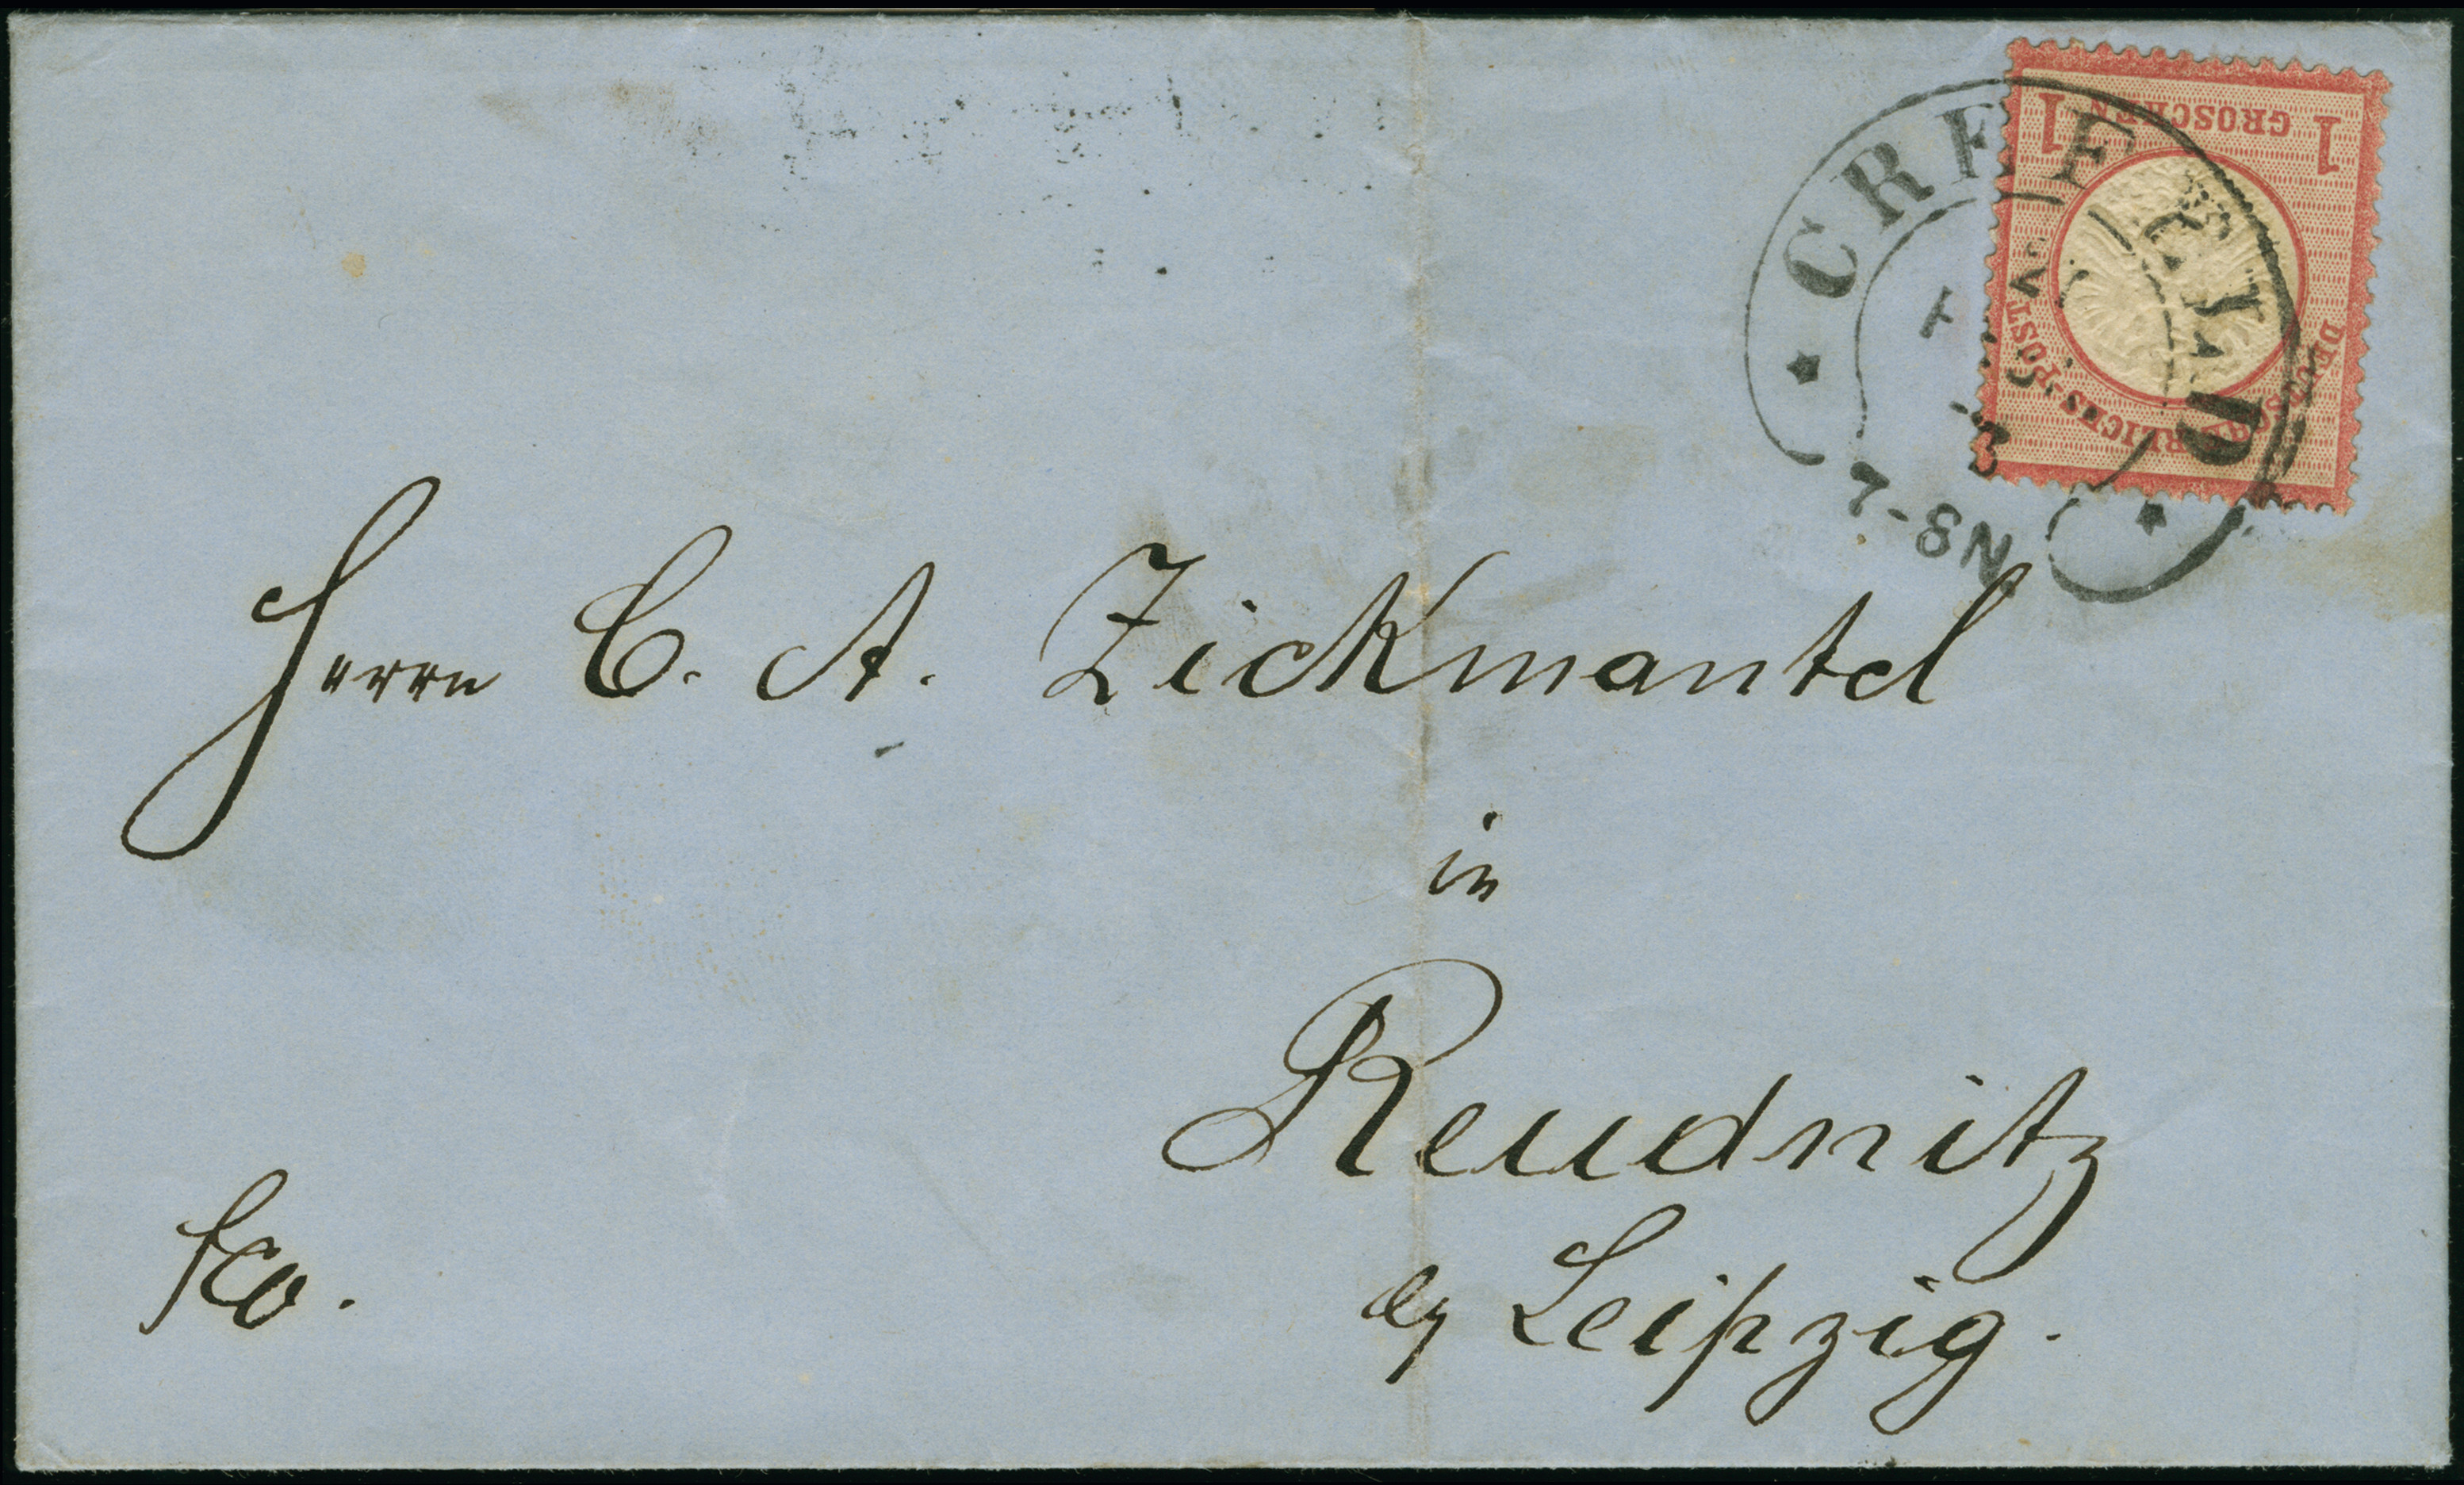 1 GROSCHEN 1
DEUTSCHE REICHS-POST
★ CREFELD ★
7-8N
Herrn C. A. Zickmantel
in
Reudnitz
by Leipzig.
fco.